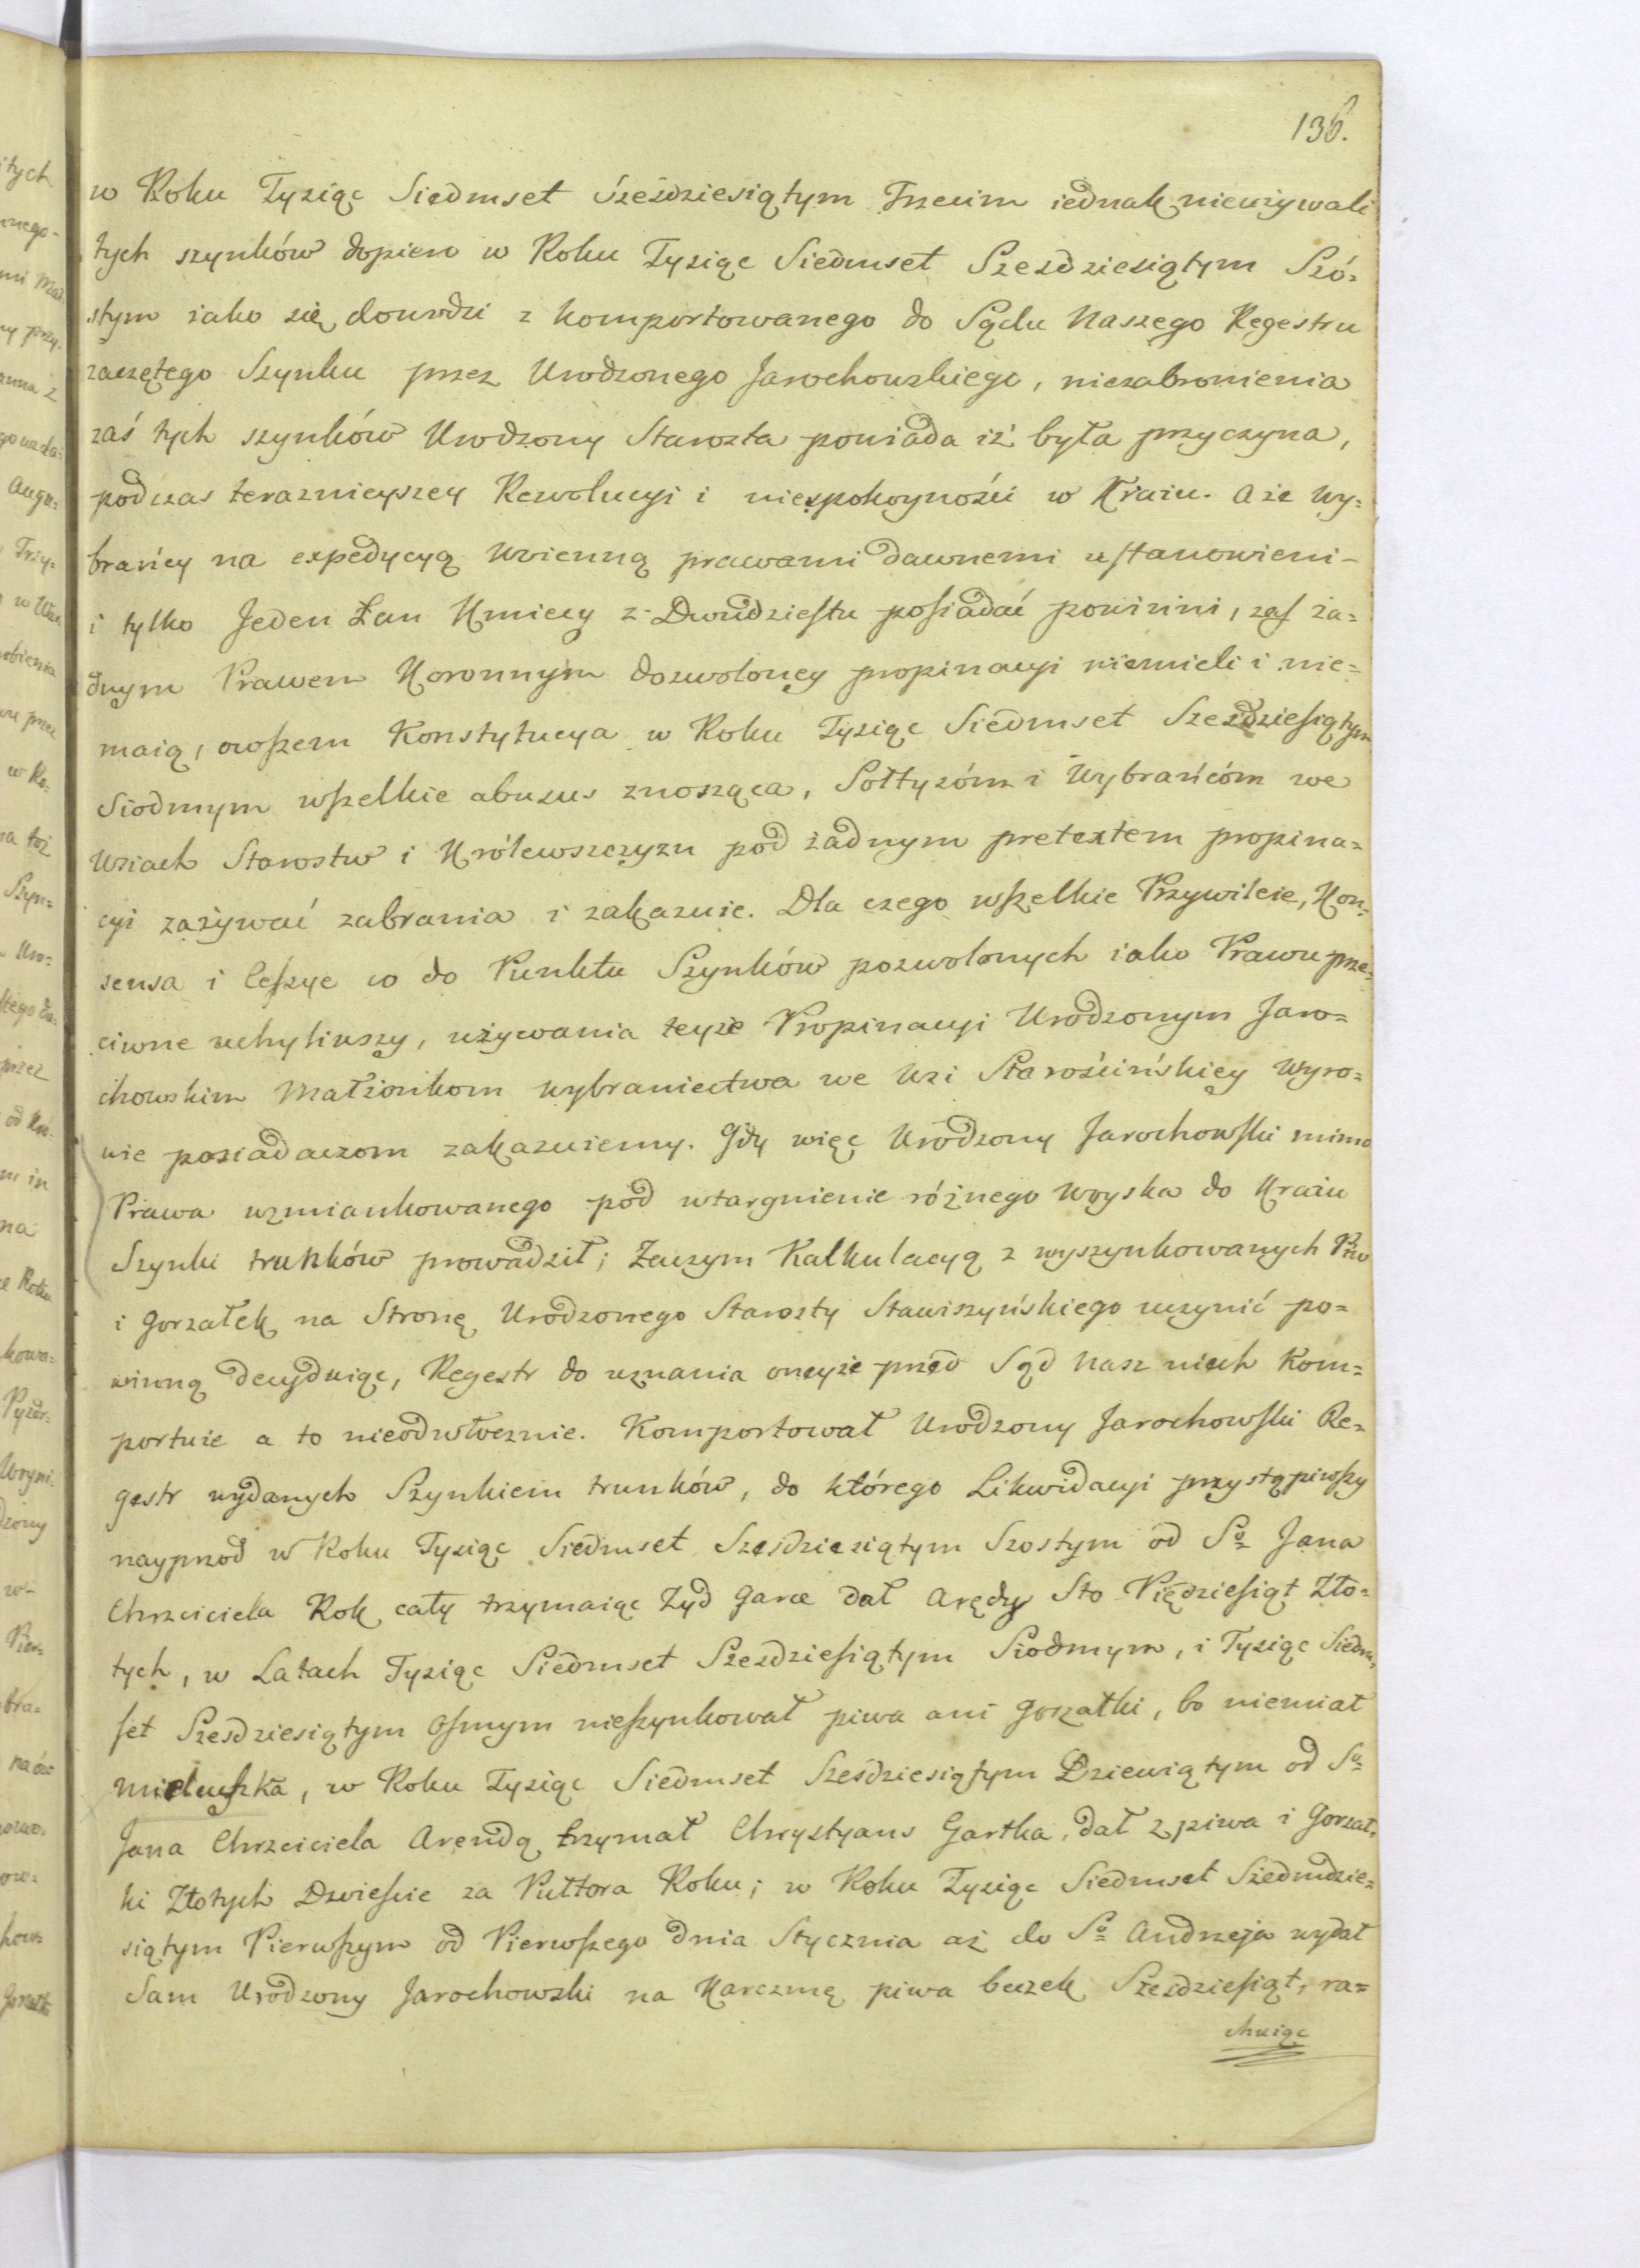 136.
w Roku Tysiąc Siedmset Sześdziesiątym Trzecim iednak nieużywali
tych szynków dopiero w Roku Tysiąc Siedmset Szesdziesiątym Szó=
stym iako się dowodzi z komportowanego do Sądu Naszego Regestru
zaczętego Szynku przez Urodzonego Jarochowskiego, niezabronienia
zaś tych szynków Urodzony Starosta powiada iż była przyczyna,
podczas teraznieyszey Rewolucyi i niespokoyności w Kraiu. a że Wy=
brańcy na expedycyą Woienną prawami dawnemi ustanowieni-
i tylko Jeden Łan Kmiecy z Dwudziestu posiadać powinni, zaś ża=
dnym Prawem Koronnym dozwoloney propinacyi niemieli i nie=
maią, owszem Konstytucya w Roku Tysiąc Siedmset Szesdziesiątym
Siodmym wszelkie abusus znosząca, Sołtysóm i Wybrańcóm we
Wsiach Starostw i Królewszczyzn pod żadnym pretextem propina=
cyi zażywać zabrania i zakazuie. Dla czego wszelkie Przywileie, Kon=
sensa i Cessye co do Punktu Szynków pozwolonych iako Prawu prze=
ciwne uchyliwszy, używania teyże Propinacyi Urodzonym Jaro=
chowskim Małżonkom Wybraniectwa we Wsi Starościńskiey Wyro=
wie posiadaczom zakazuiemy. Gdy więc Urodzony Jarochowski mimo
Prawa wzmiankowanego pod wtargnienie różnego Woyska do Kraiu
Szynki trunków prowadził; Zaczym Kalkulacyą z wyszynkowanych Piw
i Gorzałek na Stronę Urodzonego Starosty Stawiszyńskiego uczynić po=
winną decyduiąc, Regestr do uznania oneyże przed Sąd Nasz niech Kom=
portuie a to nieodwłocznie. Komportował Urodzony Jarochowski Re=
gestr wydanych Szynkiem trunków, do którego Likwidacyi przystąpiwszy
nayprzod w Roku Tysiąc Siedmset Szesdziesiątym Szostym od So Jana
Chrzciciela Rok cały trzymaiąc Zyd Garce dał Arędy Sto Pięździesiąt Zło=
tych, w Latach Tysiąc Siedmset Szesdziesiątym Siodmym, i Tysiąc Siedm=
set Szesdziesiątym osmym nieszynkował piwa ani gorzałki, bo niemiał
Mieluszka, w Roku Tysiąc Siedmset Sześdziesiątym Dziewiątym od So
Jana Chrzciciela Arendą trzymał Chrystyans Gartka, dał z piwa i Gorzał=
ki Złotych Dwieście za Pułtora Roku; w Roku Tysiąc Siedmset Siedmdzie=
siątym Pierwszym od Pierwszego dnia Stycznia aż do So Andrzeja wydał
Sam Urodzony Jarochowski na Karczmę piwa beczek Szesdziesiąt, ra=
chuiąc